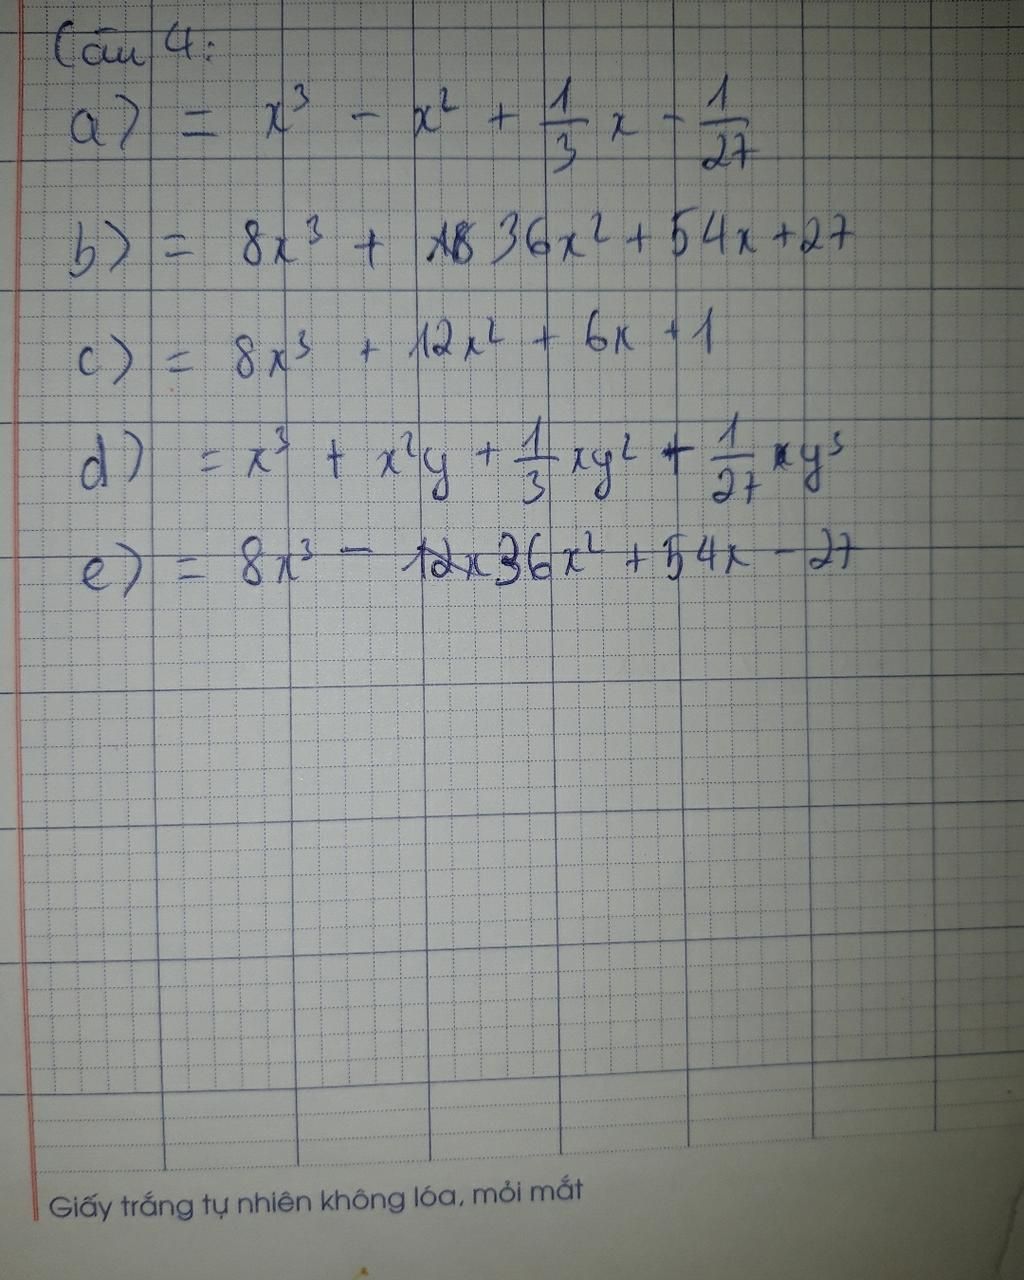 Câu 4:
a) = x³ - x² + 1/3 x - 1/27
b) = 8x³ + 36x² + 54x + 27
c) = 8x³ + 12x² + 6x + 1
d) = x³ + x²y + 1/3 xy² + 1/27 xy³
e) = 8x³ - 36x² + 54x - 27
Giấy trắng tự nhiên không lóa, mỏi mắt